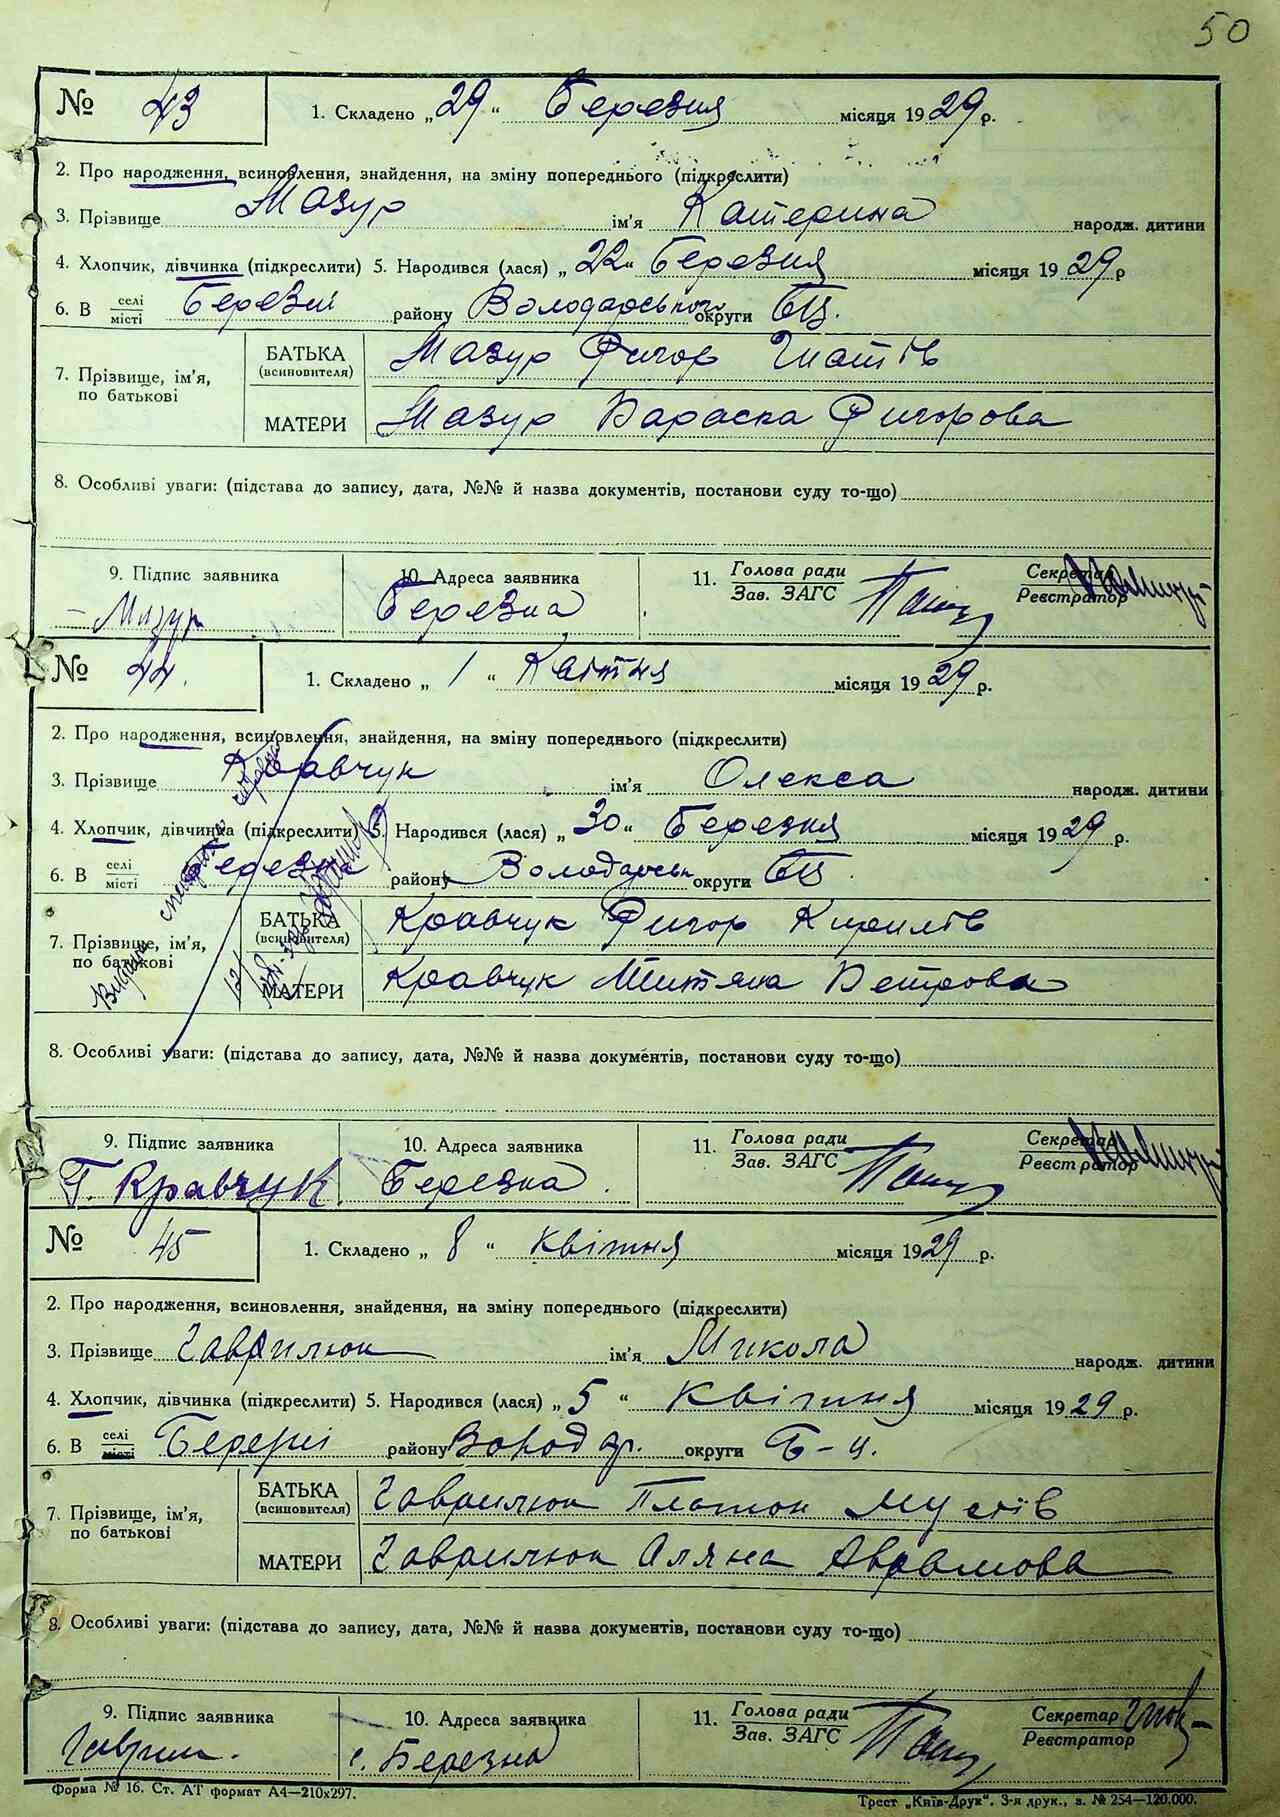 50
№ 43 1. Складено „29“ Березня місяця 1929 р.
2. Про народження, всиновлення, знайдення, на зміну попереднього (підкреслити)
3. Прізвище Мазур ім'я Катерина народж. дитини
4. Хлопчик, дівчинка (підкреслити) 5. Народився (лася) „22“ Березня місяця 1929 р
6. В селі місті Березні району Володарського округи БЦ.
7. Прізвище, ім'я, по батькові
БАТЬКА (всиновителя) Мазур Григор Гнатів
МАТЕРИ Мазур Параска Григорова
8. Особливі уваги: (підстава до запису, дата, №№ й назва документів, постанови суду то-що)
9. Підпис заявника 10. Адреса заявника 11. Голова ради Зав. ЗАГС Секретар Реєстратор
Мазур Березна
№ 44. 1. Складено „1“ Квітня місяця 1929 р.
2. Про народження, всиновлення, знайдення, на зміну попереднього (підкреслити)
3. Прізвище Кравчук ім'я Олекса народж. дитини
4. Хлопчик, дівчинка (підкреслити) 5. Народився (лася) „30“ Березня місяця 1929 р.
6. В селі місті Березні району Володарськ округи БЦ.
7. Прізвище, ім'я, по батькові
БАТЬКА (всиновителя) Кравчук Григор Кирилів
МАТЕРИ Кравчук Титяна Петрова
8. Особливі уваги: (підстава до запису, дата, №№ й назва документів, постанови суду то-що)
9. Підпис заявника 10. Адреса заявника 11. Голова ради Зав. ЗАГС Секретар Реєстратор
Г. Кравчук Березна.
№ 45 1. Складено „8“ квітня місяця 1929 р.
2. Про народження, всиновлення, знайдення, на зміну попереднього (підкреслити)
3. Прізвище Гаврилюк ім'я Микола народж. дитини
4. Хлопчик, дівчинка (підкреслити) 5. Народився (лася) „5“ квітня місяця 1929 р.
6. В селі місті району Володар. округи Б-ц.
7. Прізвище, ім'я, по батькові
БАТЬКА (всиновителя) Гаврилюк Платон
МАТЕРИ Гаврилюк Аляна Аврамова
8. Особливі уваги: (підстава до запису, дата, №№ й назва документів, постанови суду то-що)
9. Підпис заявника 10. Адреса заявника 11. Голова ради Зав. ЗАГС Секретар Реєстратор
Гаврил. с. Березна
Форма № 16. Ст. АТ формат А4—210х297. Трест „Київ-Друк“. 3-я друк., з. № 254—120.000.